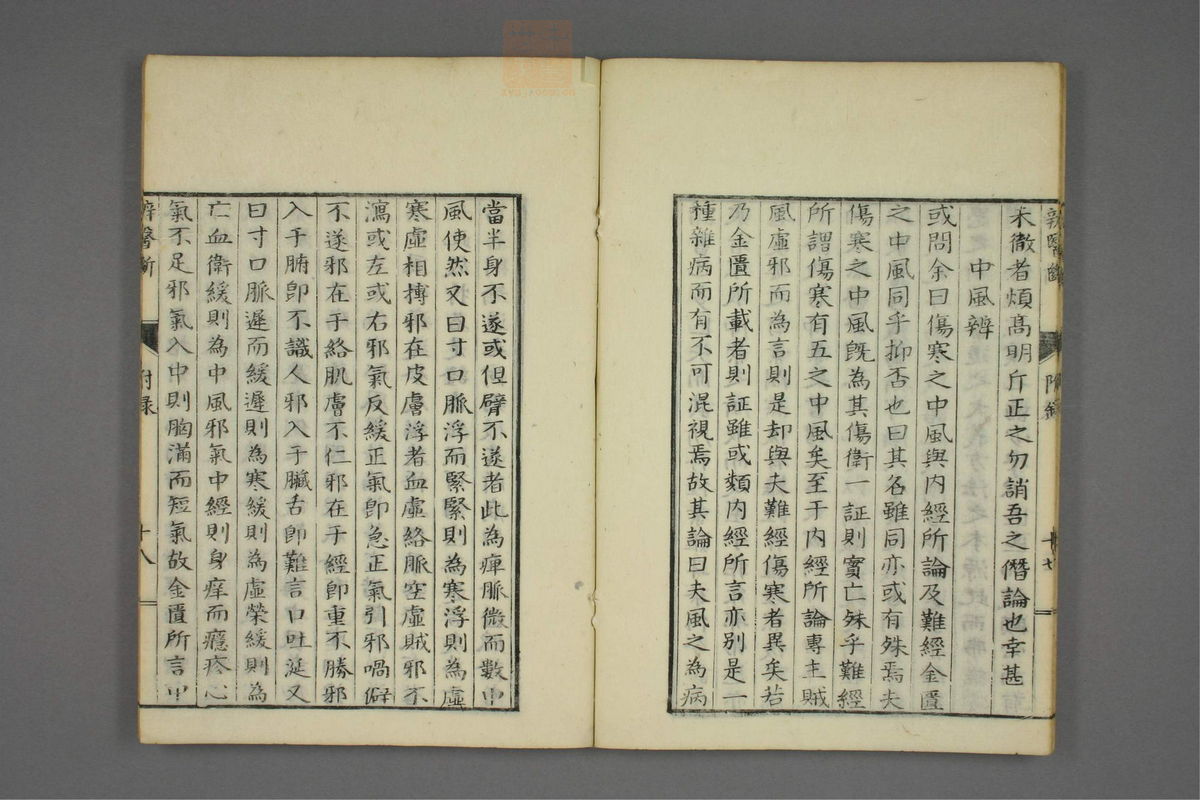 斥醫斷 附錄 十七
未徹者煩高明斤正之勿誚吾之僭論也幸甚
中風辨
或問余曰傷寒之中風與内經所論及難經金匱
之中風同乎抑否也曰其名雖同亦或有殊焉夫
傷寒之中風旣為其傷衛一証則實亡殊乎難經
所謂傷寒有五之中風矣至于内經所論專主賊
風虛邪而為言則是却與夫難經傷寒者異矣若
乃金匱所載者則証雖或類内經所言亦別是一
種雜病而有不可混視焉故其論曰夫風之為病
當半身不遂或但臂不遂者此為痺脈微而數中
風使然又曰寸口脈浮而緊緊則為寒浮則為虛
寒虛相搏邪在皮膚浮者血虛絡脈空虛賊邪不
瀉或左或右邪氣反緩正氣卽急正氣引邪喎僻
不遂邪在于絡肌膚不仁邪在于經卽重不勝邪
入于腑卽不識人邪入于臟舌卽難言口吐涎又
曰寸口脈遲而緩遲則為寒緩則為虛榮緩則為
亡血衛緩則為中風邪氣中經則身痒而癮疹心
氣不足邪氣入中則胸滿而短氣故金匱所言中
醫斷 附錄 十八